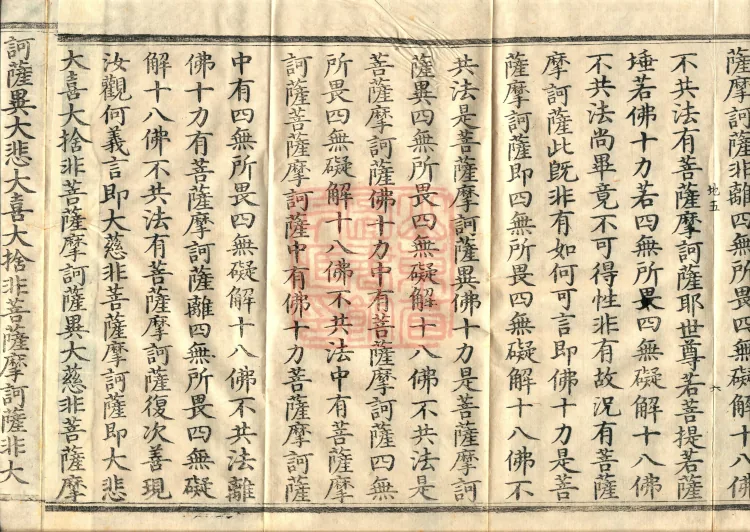 薩摩訶薩非離四無所畏四無礙解十八佛
不共法有菩薩摩訶薩耶世尊若菩提若薩
埵若佛十力若四無所畏四無礙解十八佛
不共法尚畢竟不可得性非有故況有菩薩
摩訶薩此既非有如何可言即佛十力是菩
薩摩訶薩即四無所畏四無礙解十八佛不
共法是菩薩摩訶薩異佛十力是菩薩摩訶
薩異四無所畏四無礙解十八佛不共法是
菩薩摩訶薩佛十力中有菩薩摩訶薩四無
所畏四無礙解十八佛不共法中有菩薩摩
訶薩菩薩摩訶薩中有佛十力菩薩摩訶薩
中有四無所畏四無礙解十八佛不共法離
佛十力有菩薩摩訶薩離四無所畏四無礙
解十八佛不共法有菩薩摩訶薩復次善現
汝觀何義言即大慈非菩薩摩訶薩即大悲
大喜大捨非菩薩摩訶薩異大慈非菩薩摩
訶薩異大悲大喜大捨非菩薩摩訶薩非大
地五
六